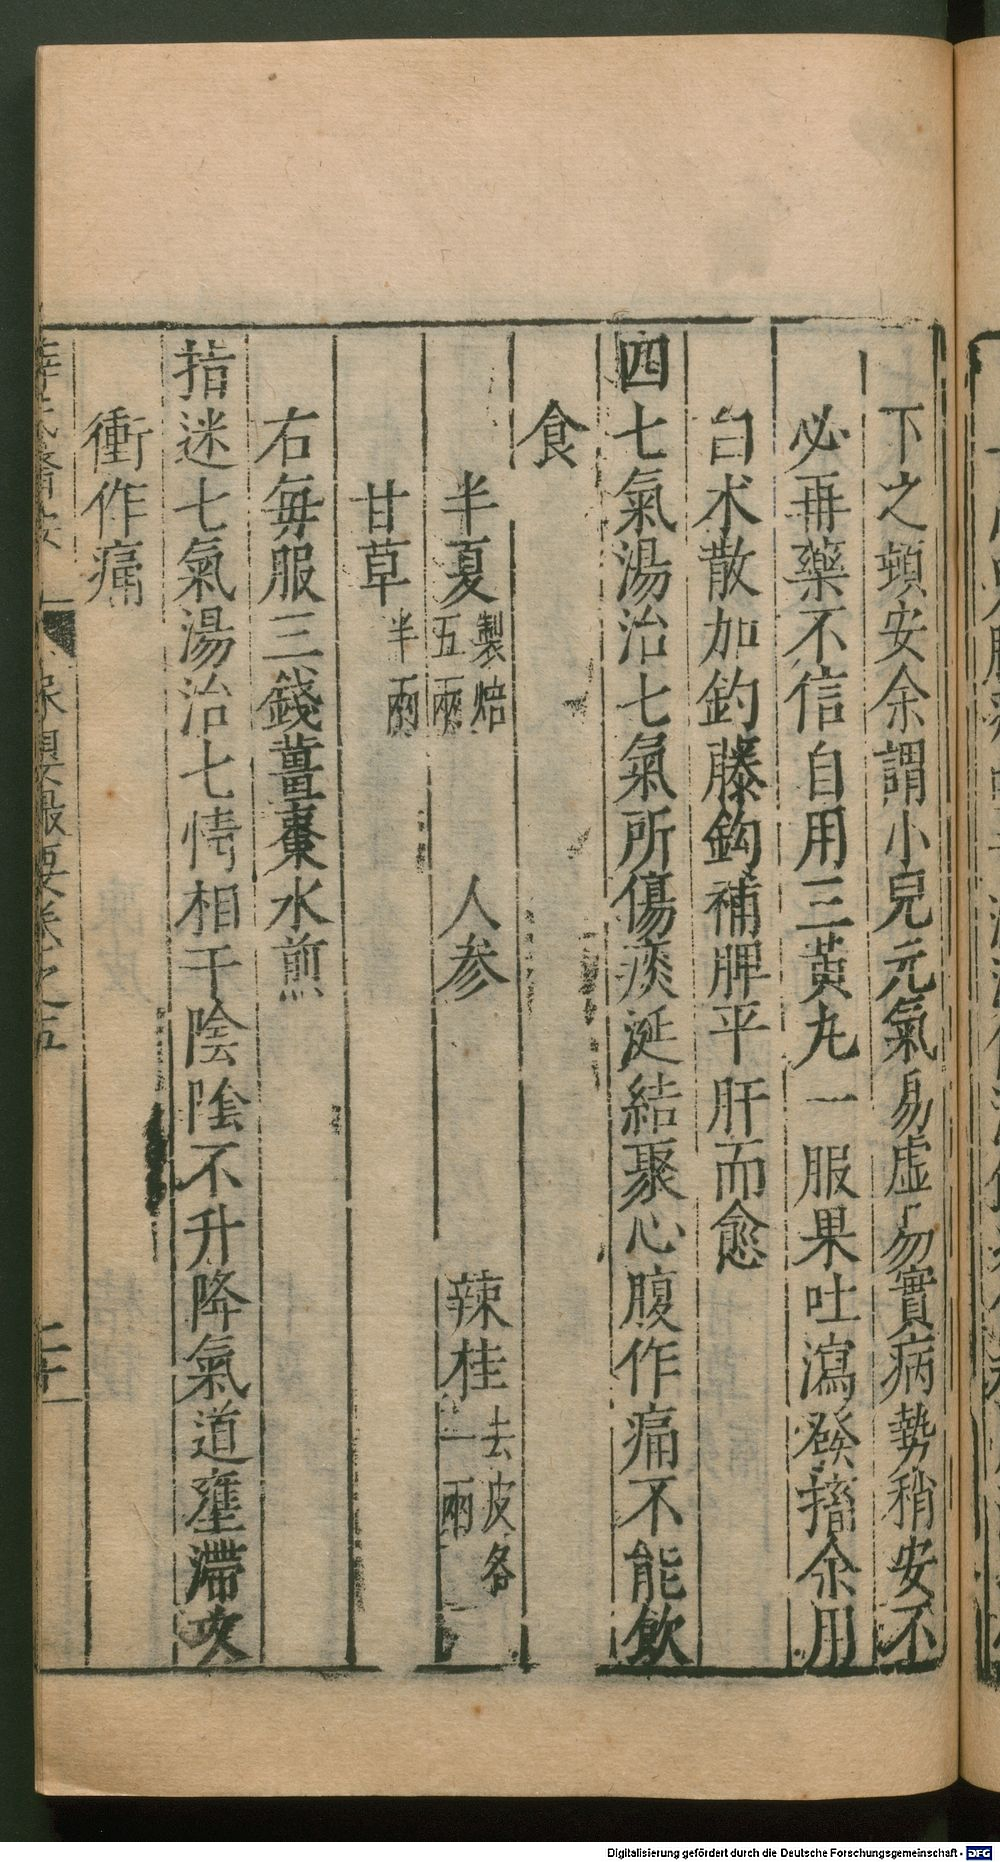 下之頓安余謂小兒元氣易虛勿實病勢稍安不
必再藥不信自用三黃丸一服果吐瀉發搐余用
白朮散加釣藤鈎補脾平肝而愈
四七氣湯治七氣所傷痰涎結聚心腹作痛不能飲
食
半夏製焙五兩 人參 辣桂去皮各一兩
甘草半兩
右每服三錢薑棗水煎
指迷七氣湯治七情相干陰陰不升降氣道壅滯攻
衝作痛
薛氏醫按 保嬰撮要卷之五
Digitalisierung gefördert durch die Deutsche Forschungsgemeinschaft - DFG